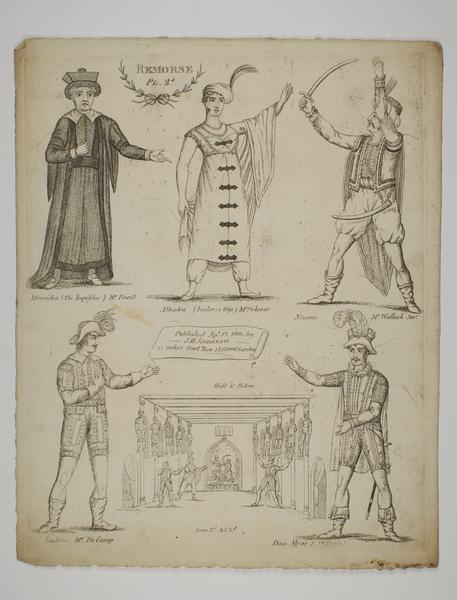 REMORSE
Pl. 2d
Monviedro (The Inquisitor) Mr. Powell
Alhadra (Isidores Wife) Mrs. Glover
Naomi Mr. Wallack Junr.
Published Apl. 1st 1813, by
J.H. Jameson
13 Dukes Court Bow St. Covent Garden
Hall &
Scene 2d. Act 3d.
Isidore Mr. De Camp
Don Alvar (1st Dress)